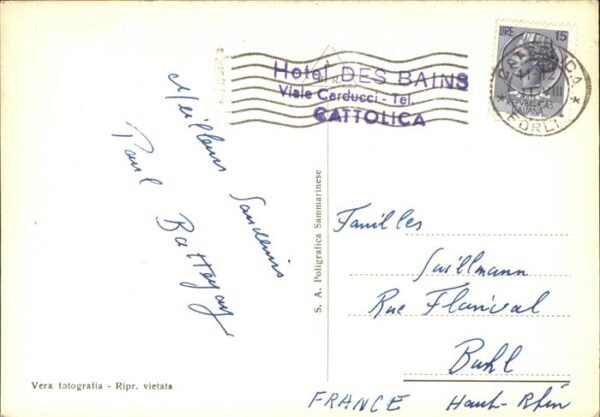 LIRE 15
REPUBBLICA
ITALIANA
CATTOLICA
* FORLI *
Hotel DES BAINS
Viale Carducci - Tel.
CATTOLICA
Meilleurs Souvenirs
Paul Battegay
S. A. Poligrafica Sammarinese
Familles
Guillmann
Rue Florival
Buhl
FRANCE Haut-Rhin
Vera fotografia - Ripr. vietata